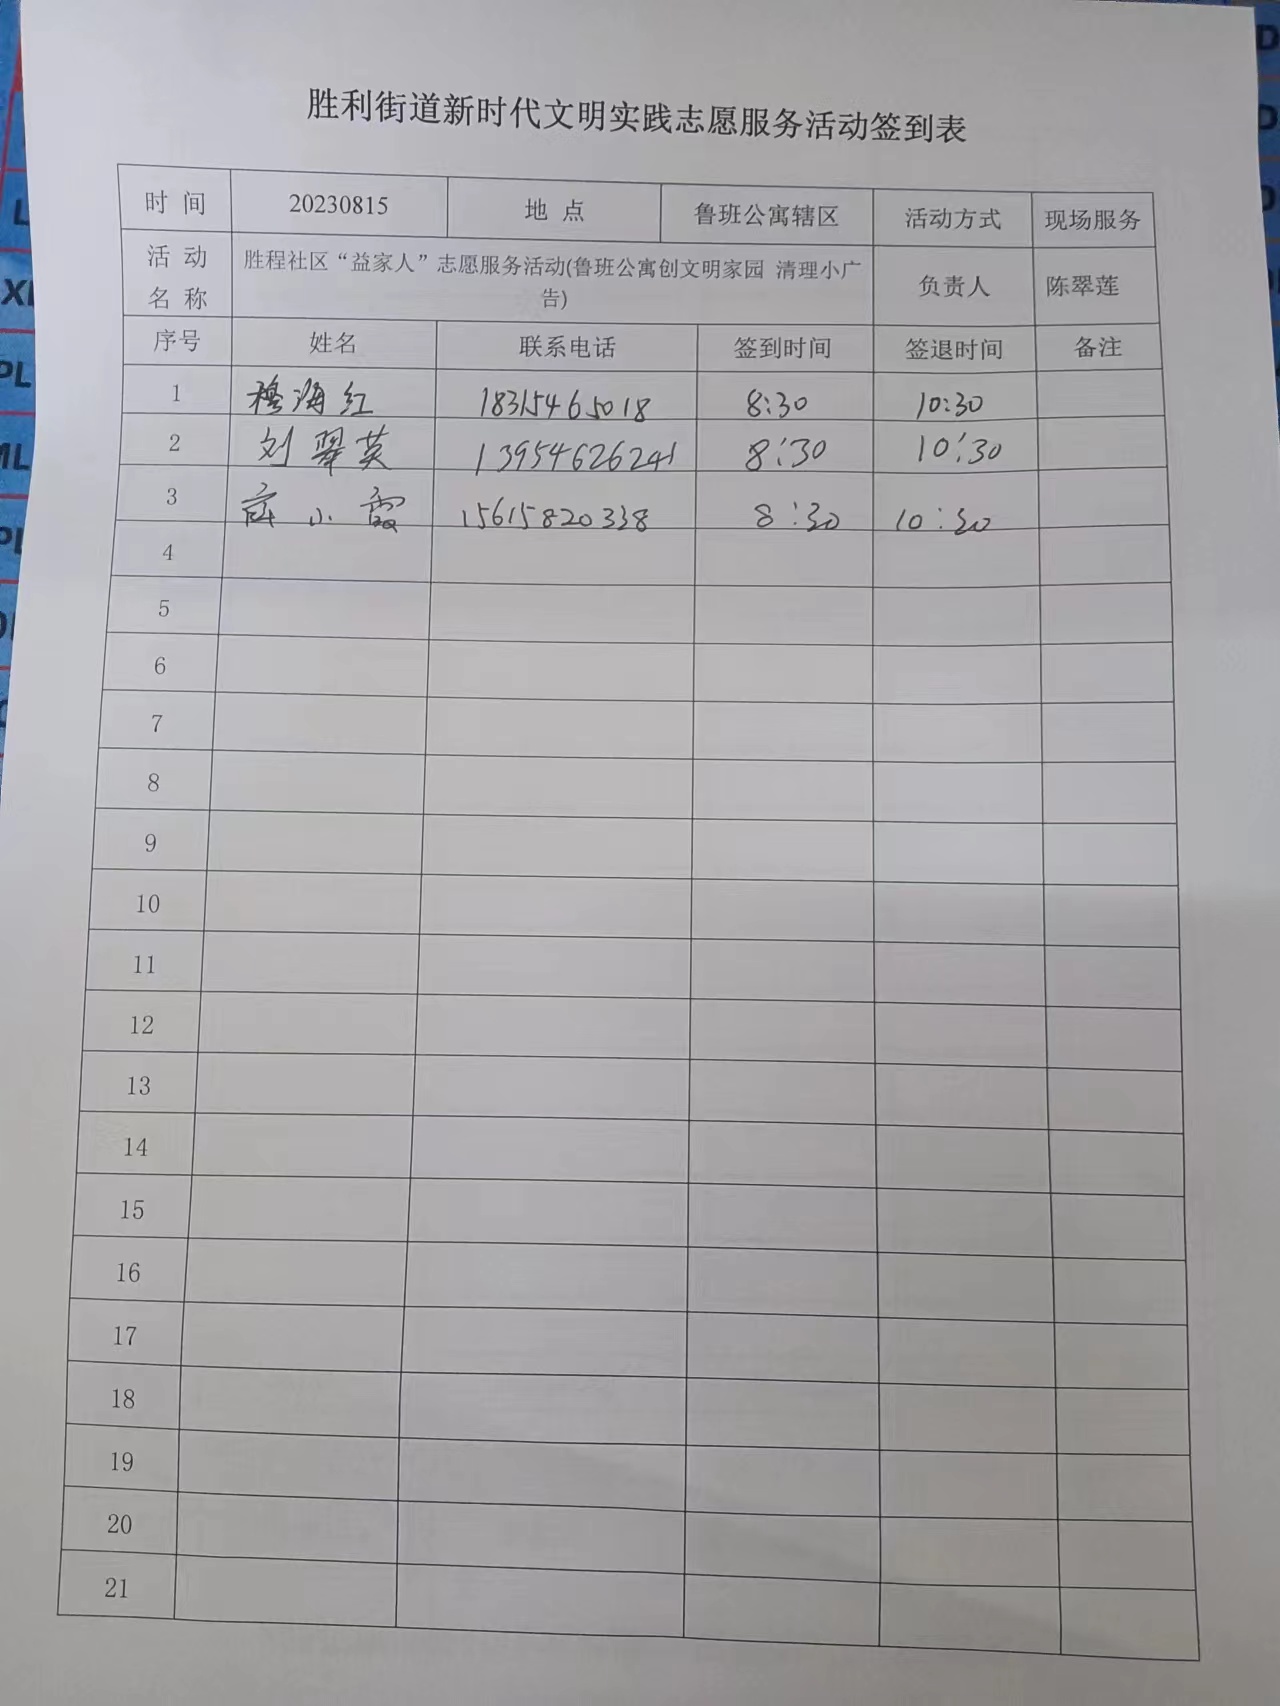 胜利街道新时代文明实践志愿服务活动签到表
时 间 20230815 地 点 鲁班公寓辖区 活动方式 现场服务
活 动 名 称 胜程社区“益家人”志愿服务活动(鲁班公寓创文明家园 清理小广告) 负责人 陈翠莲
序号 姓名 联系电话 签到时间 签退时间 备注
1 穆海红 18315465018 8:30 10:30
2 刘翠英 13954626241 8:30 10:30
3 小霞 15615820338 8:30 10:30
4
5
6
7
8
9
10
11
12
13
14
15
16
17
18
19
20
21